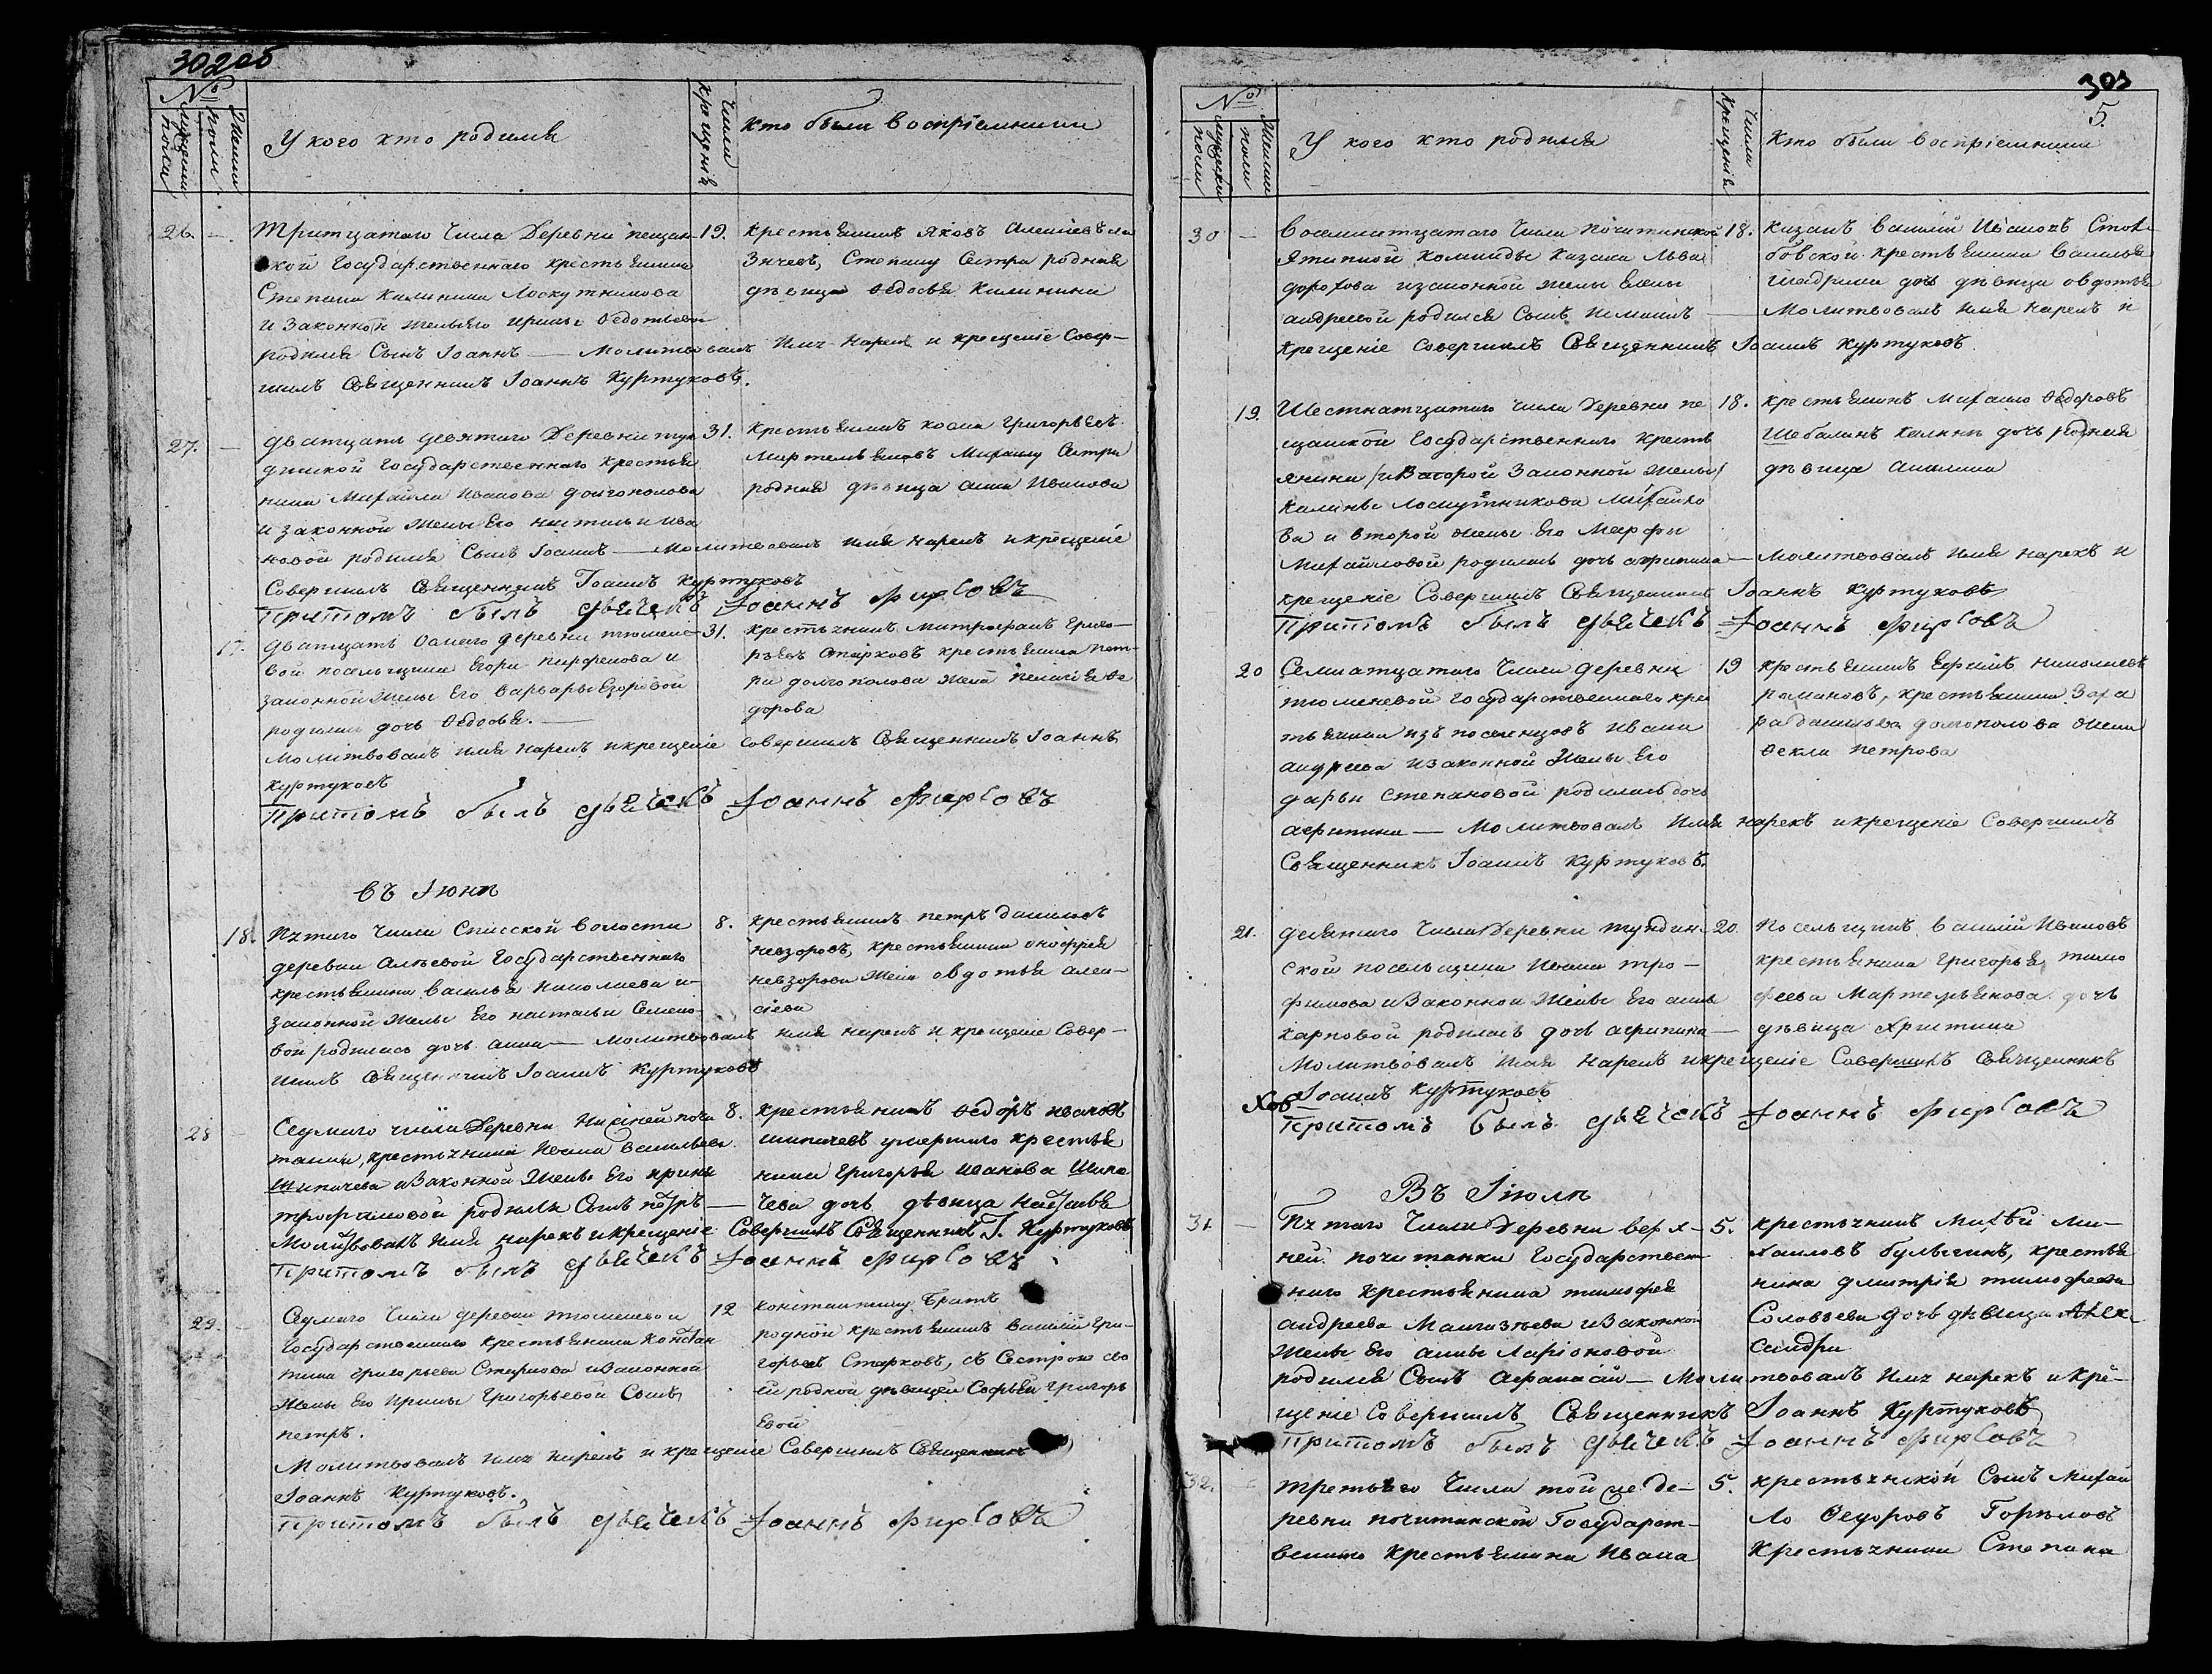 302об
№
Мужеска пола
Женска пола
У кого кто родился
Числа крещенія
Кто были воспріемники
26. —
Тритцатаго Числа Деревни пещан-
ской Государственнаго крестьянина
Степана Калинина Лоскутникова
и Законной жены его ирины Ѳедотьевой
родился Сынъ Іоаннъ — Молитвовалъ имя Нарекъ и крещеніе Совер-
шилъ Священникъ Іоаннъ Куртуковъ.
19.
крестьянинъ Яковъ Алексіевъ
Степану Сестра родная
дѣвица Ѳедосья Калинина
27. —
дватцать девятаго Деревни тун
динской Государственнаго крестья
нина Михайла Иванова долгополова
и законной жены Его настасьи ива
новой родился Сынъ Іоаннъ — молитвовалъ имя нарекъ и крещеніе
Совершилъ Священникъ Іоаннъ Куртуковъ
Притомъ былъ дьячекъ Іоаннъ Фирсовъ
31.
Крестьянинъ косма Григорьевъ
Мартемьяновъ Михаилу Сестра
родная дѣвица анна Иванова
17.
дватцать осмаго деревни тюмене-
вой посельщика Егора парфенова и
законной жены Его варвары Егоровой
родилась дочь Ѳедосья. —
молитвовалъ имя нарекъ и крещеніе Совершилъ Священникъ Іоаннъ
куртуковъ
Притомъ былъ дьячекъ Іоаннъ Фирсовъ
31.
крестьянинъ митрофанъ Григо-
рьевъ Старковъ крестьянина пет-
ра долгополова жена пелагія Ѳе
дорова
въ Іюнѣ
18.
Пятаго Числа Спасской волости
деревни Алѣевой Государственнаго
крестьянина василья николаева и
законной жены Его настасьи Семено-
вой родилась дочь анна — молитвовалъ имя нарекъ и крещеніе Совер-
шилъ Священникъ Іоаннъ Куртуковъ
8.
крестьянинъ петръ даниловъ
невзоровъ, крестьянина онофрея
невзорова жена овдотья алек-
сіева
28
Седмаго числа Деревни Нижней почи
танки, крестьянина Ивана васильева
Шипачева и Законной Жены Его ирины
трофимовой родился Сынъ петръ —
Молитвовалъ имя нарекъ и крещеніе Совершилъ Священникъ І. Куртуковъ
Притомъ былъ дьячекъ Іоаннъ Фирсовъ
8.
крестьянинъ Ѳедоръ ивановъ
шипачевъ умершаго крестья
нина Григорья иванова Шипа
чева дочь дѣвица Настасья
29. —
Седмаго Числа деревни тюменевой
Государственнаго крестьянина констан
тина григорьева Старкова и законной
жены Его Ирины Григорьевой Сынъ
петръ.
Молитвовалъ имя нарекъ и крещеніе Совершилъ Священникъ
Іоаннъ Куртуковъ.
Притомъ былъ дьячекъ Іоаннъ Фирсовъ
12
константину Братъ
родной крестьянинъ василій Гри-
горьевъ Старковъ, съ Сестрою сво
ей родной дѣвицей Софьей Григорь
евой
303
5.
№
Мужеска пола
Женска пола
У кого кто родился
Числа Крещенія
Кто были воспріемники
30 —
восемнатцатаго Числа почитанской
Этапной команды казака Льва
дорохова и законной жены Елены
андреевой родился Сынъ —
Крещеніе Совершилъ Священникъ Іоаннъ Куртуковъ
18.
Казакъ василій Ивановъ
крестьянина василья
шадрина дочь дѣвица овдотья
Молитвовалъ имя Нарекъ и
19
Шестнатцатаго числа Деревни пе
щанской Государственнаго Кресть
янина /и Второй Законной Жены/
Калины Лоскутникова михайло
ва и второй жены Его Марфы
михайловой родилась дочь агрипина — молитвовалъ имя нарекъ и
крещеніе Совершилъ Священникъ Іоаннъ Куртуковъ
Притомъ былъ дьячекъ Іоаннъ Фирсовъ
18.
крестьянинъ михайло Ѳедоровъ
Шебалинъ калины дочь родная
дѣвица
20
Семнатцатаго числа деревни
тюменевой Государственнаго крес
тьянина изъ поселенцовъ ивана
андреева и законной Жены Его
дарьи Степановой родилась дочь
агрипина — Молитвовалъ Имя нарекъ и крещеніе Совершилъ
Священникъ Іоаннъ Куртуковъ.
19
крестьянинъ николаевъ
романовъ, крестьянина Заха
ра данилова долгополова жена
Ѳекла петрова
21.
десятаго Числа Деревни тундин-
ской посельщика Ивана тро-
фимова и Законной Жены Его анны
карповой родилась дочь агрипина —
молитвовалъ имя Нарекъ и крещеніе Совершилъ Священникъ
Іоаннъ Куртуковъ
Притомъ былъ дьячекъ Іоаннъ Фирсовъ
20.
Посельщикъ василій Ивановъ
крестьянина григорья тимо
феева Мартемьянова дочь
дѣвица Христина
Въ Іюлѣ
31. —
Пятаго Числа Деревни верх-
ней почитанки Государствен-
наго крестьянина тимофея
андреева Мангазѣева и Законной
Жены Его анны Ларіоновой
родился Сынъ Афанасій — Молитвовалъ имя нарекъ и кре-
щеніе Совершилъ Священникъ Іоаннъ Куртуковъ
Притомъ былъ дьячекъ Іоаннъ Фирсовъ
5.
крестьянинъ Ми-
хаиловъ булыгинъ, крестья
нина дмитрія тимофеева
Соловьева дочь дѣвица Алек
сандра
32.
третьяго Числа той же де-
ревни почитанской Государст-
веннаго Крестьянина Ивана
5.
крестьянской Сынъ Михай
ло Ѳедоровъ Горѣловъ
Крестьянина Степана